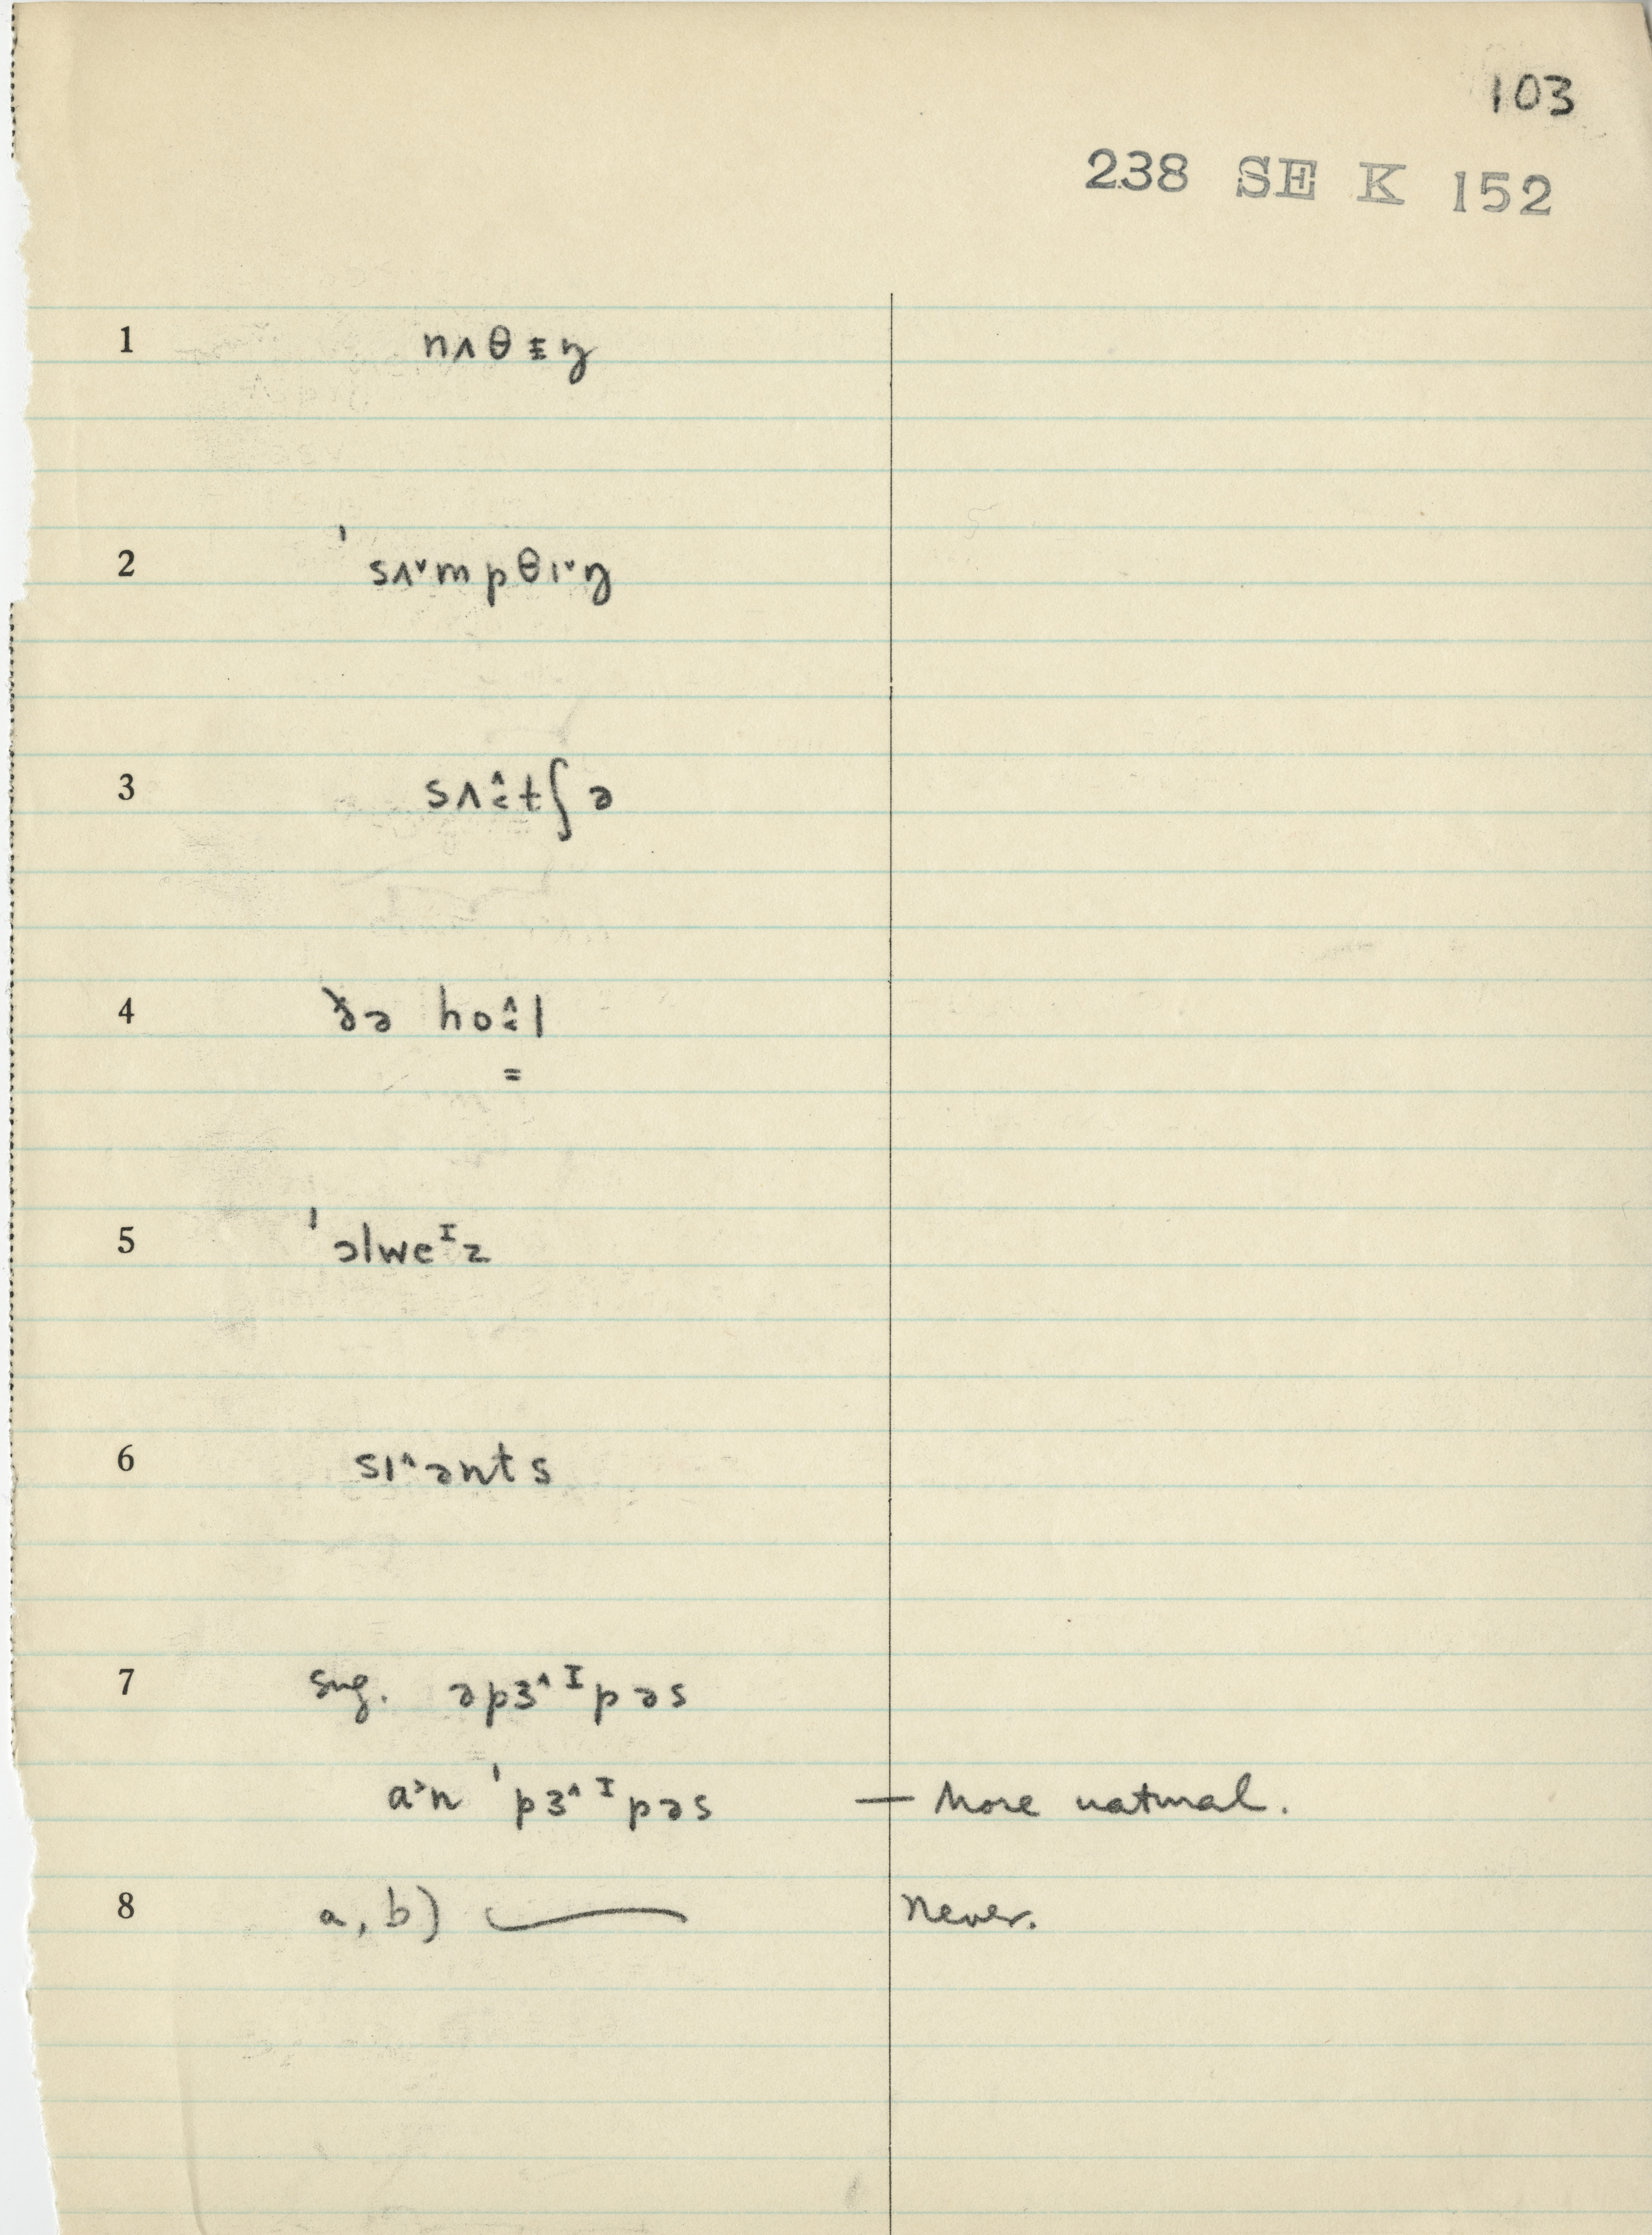 103
238 SE K 152
1 nʌθɨŋ
2 ˈsʌ˅mpθɪ˅ŋ
3 sʌ˄:tʃə
4 ðə ho˄:l
=
5 ˈɔlweᴵz
6 sɪ˄ənts
7 sug. əpɜ˄ᴵpəs
a˃n ˈpɜ˄ᴵpəs — More natural.
8 a, b) —— Never.